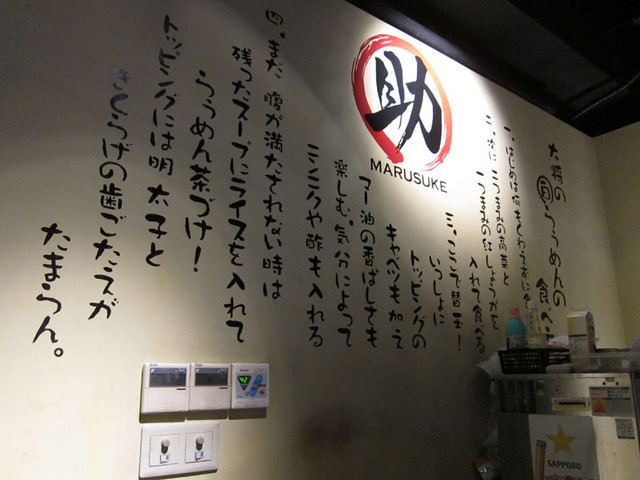 助
MARUSUKE
大将の
らうめんの
食べ
一、はじめは何も
二、次に 一つまみの高菜と
一つまみの紅しょうがを
入れて食べる
三、ここで替玉！
いっしょに
トッピングの
キャベツも加え
マー油の香ばしさも
楽しむ。気分によって
ニンニクや酢も入れる
四、まだ腹が満たされない時は
残ったスープにライスを入れて
らうめん茶づけ！
トッピングには明太子と
きくらげの歯ごたえが
たまらん。
42
SAPPORO